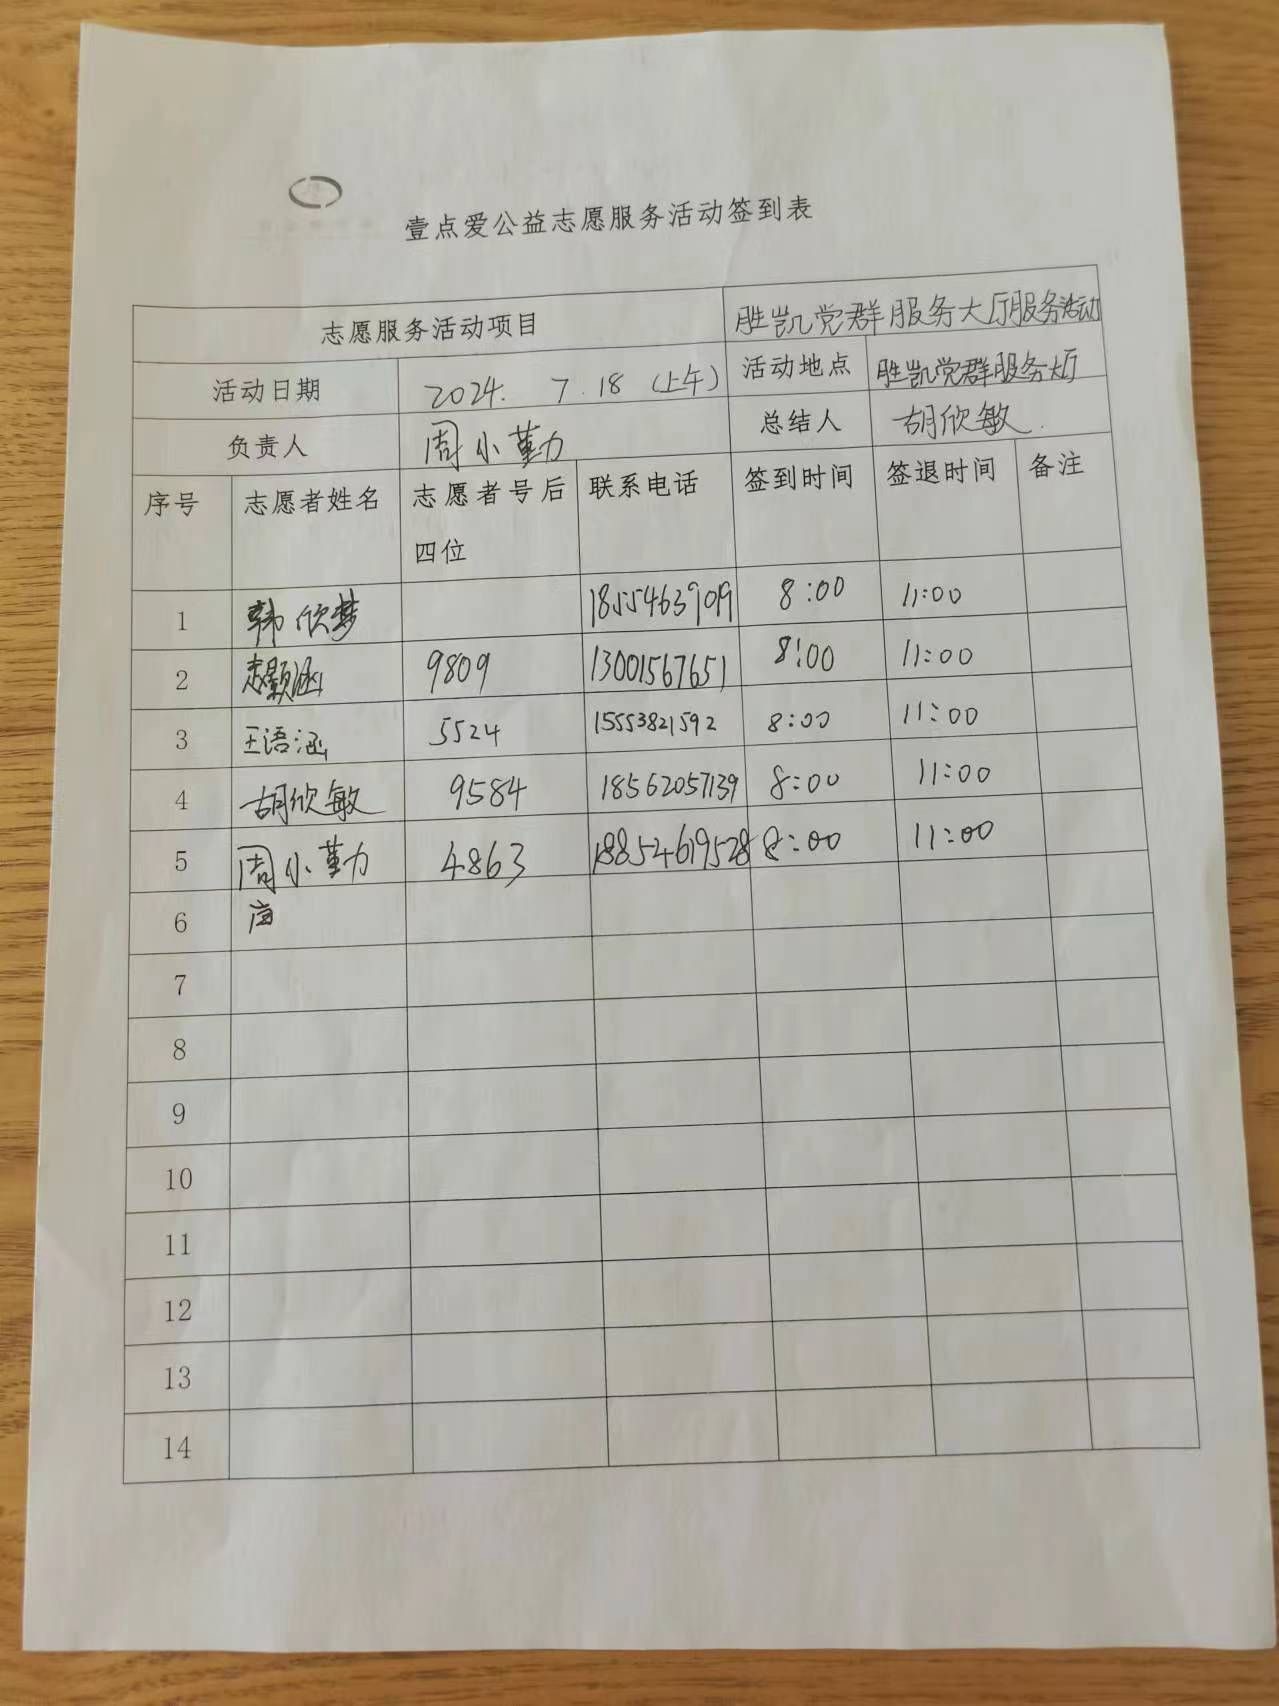 壹点爱公益志愿服务活动签到表
志愿服务活动项目 胜凯党群服务大厅服务活动
活动日期 2024. 7.18 (上午) 活动地点 胜凯党群服务大厅
负责人 周小勤 总结人 胡欣敏.
序号 志愿者姓名 志愿者号后四位 联系电话 签到时间 签退时间 备注
1 韩欣梦 18554639019 8:00 11:00
2 颢涵 9809 13001567651 8:00 11:00
3 王语涵 5524 15553821592 8:00 11:00
4 胡欣敏 9584 18562057139 8:00 11:00
5 周小勤 4863 18854619528 8:00 11:00
6
7
8
9
10
11
12
13
14